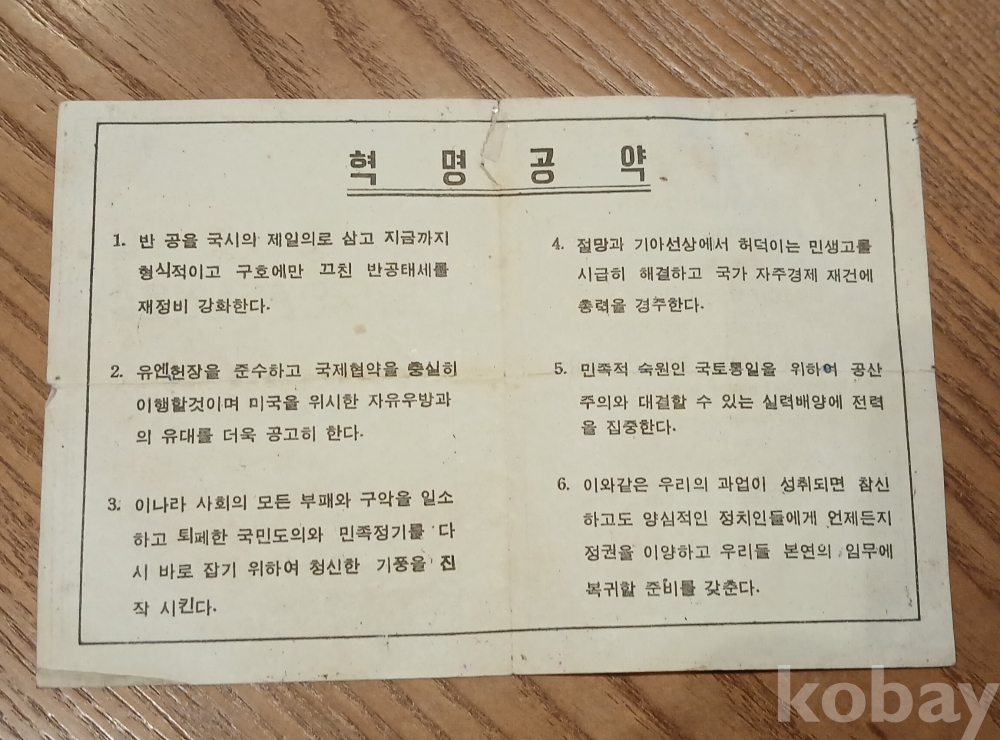 혁 명 공 약
1. 반 공을 국시의 제일의로 삼고 지금까지
형식적이고 구호에만 끄친 반공태세를
재정비 강화한다.
2. 유엔헌장을 준수하고 국제협약을 충실히
이행할것이며 미국을 위시한 자유우방과
의 유대를 더욱 공고히 한다.
3. 이나라 사회의 모든 부패와 구악을 일소
하고 퇴폐한 국민도의와 민족정기를 다
시 바로 잡기 위하여 청신한 기풍을 진
작 시킨다.
4. 절망과 기아선상에서 허덕이는 민생고를
시급히 해결하고 국가 자주경제 재건에
총력을 경주한다.
5. 민족적 숙원인 국토통일을 위하여 공산
주의와 대결할 수 있는 실력배양에 전력
을 집중한다.
6. 이와같은 우리의 과업이 성취되면 참신
하고도 양심적인 정치인들에게 언제든지
정권을 이양하고 우리들 본연의 임무에
복귀할 준비를 갖춘다.
kobay